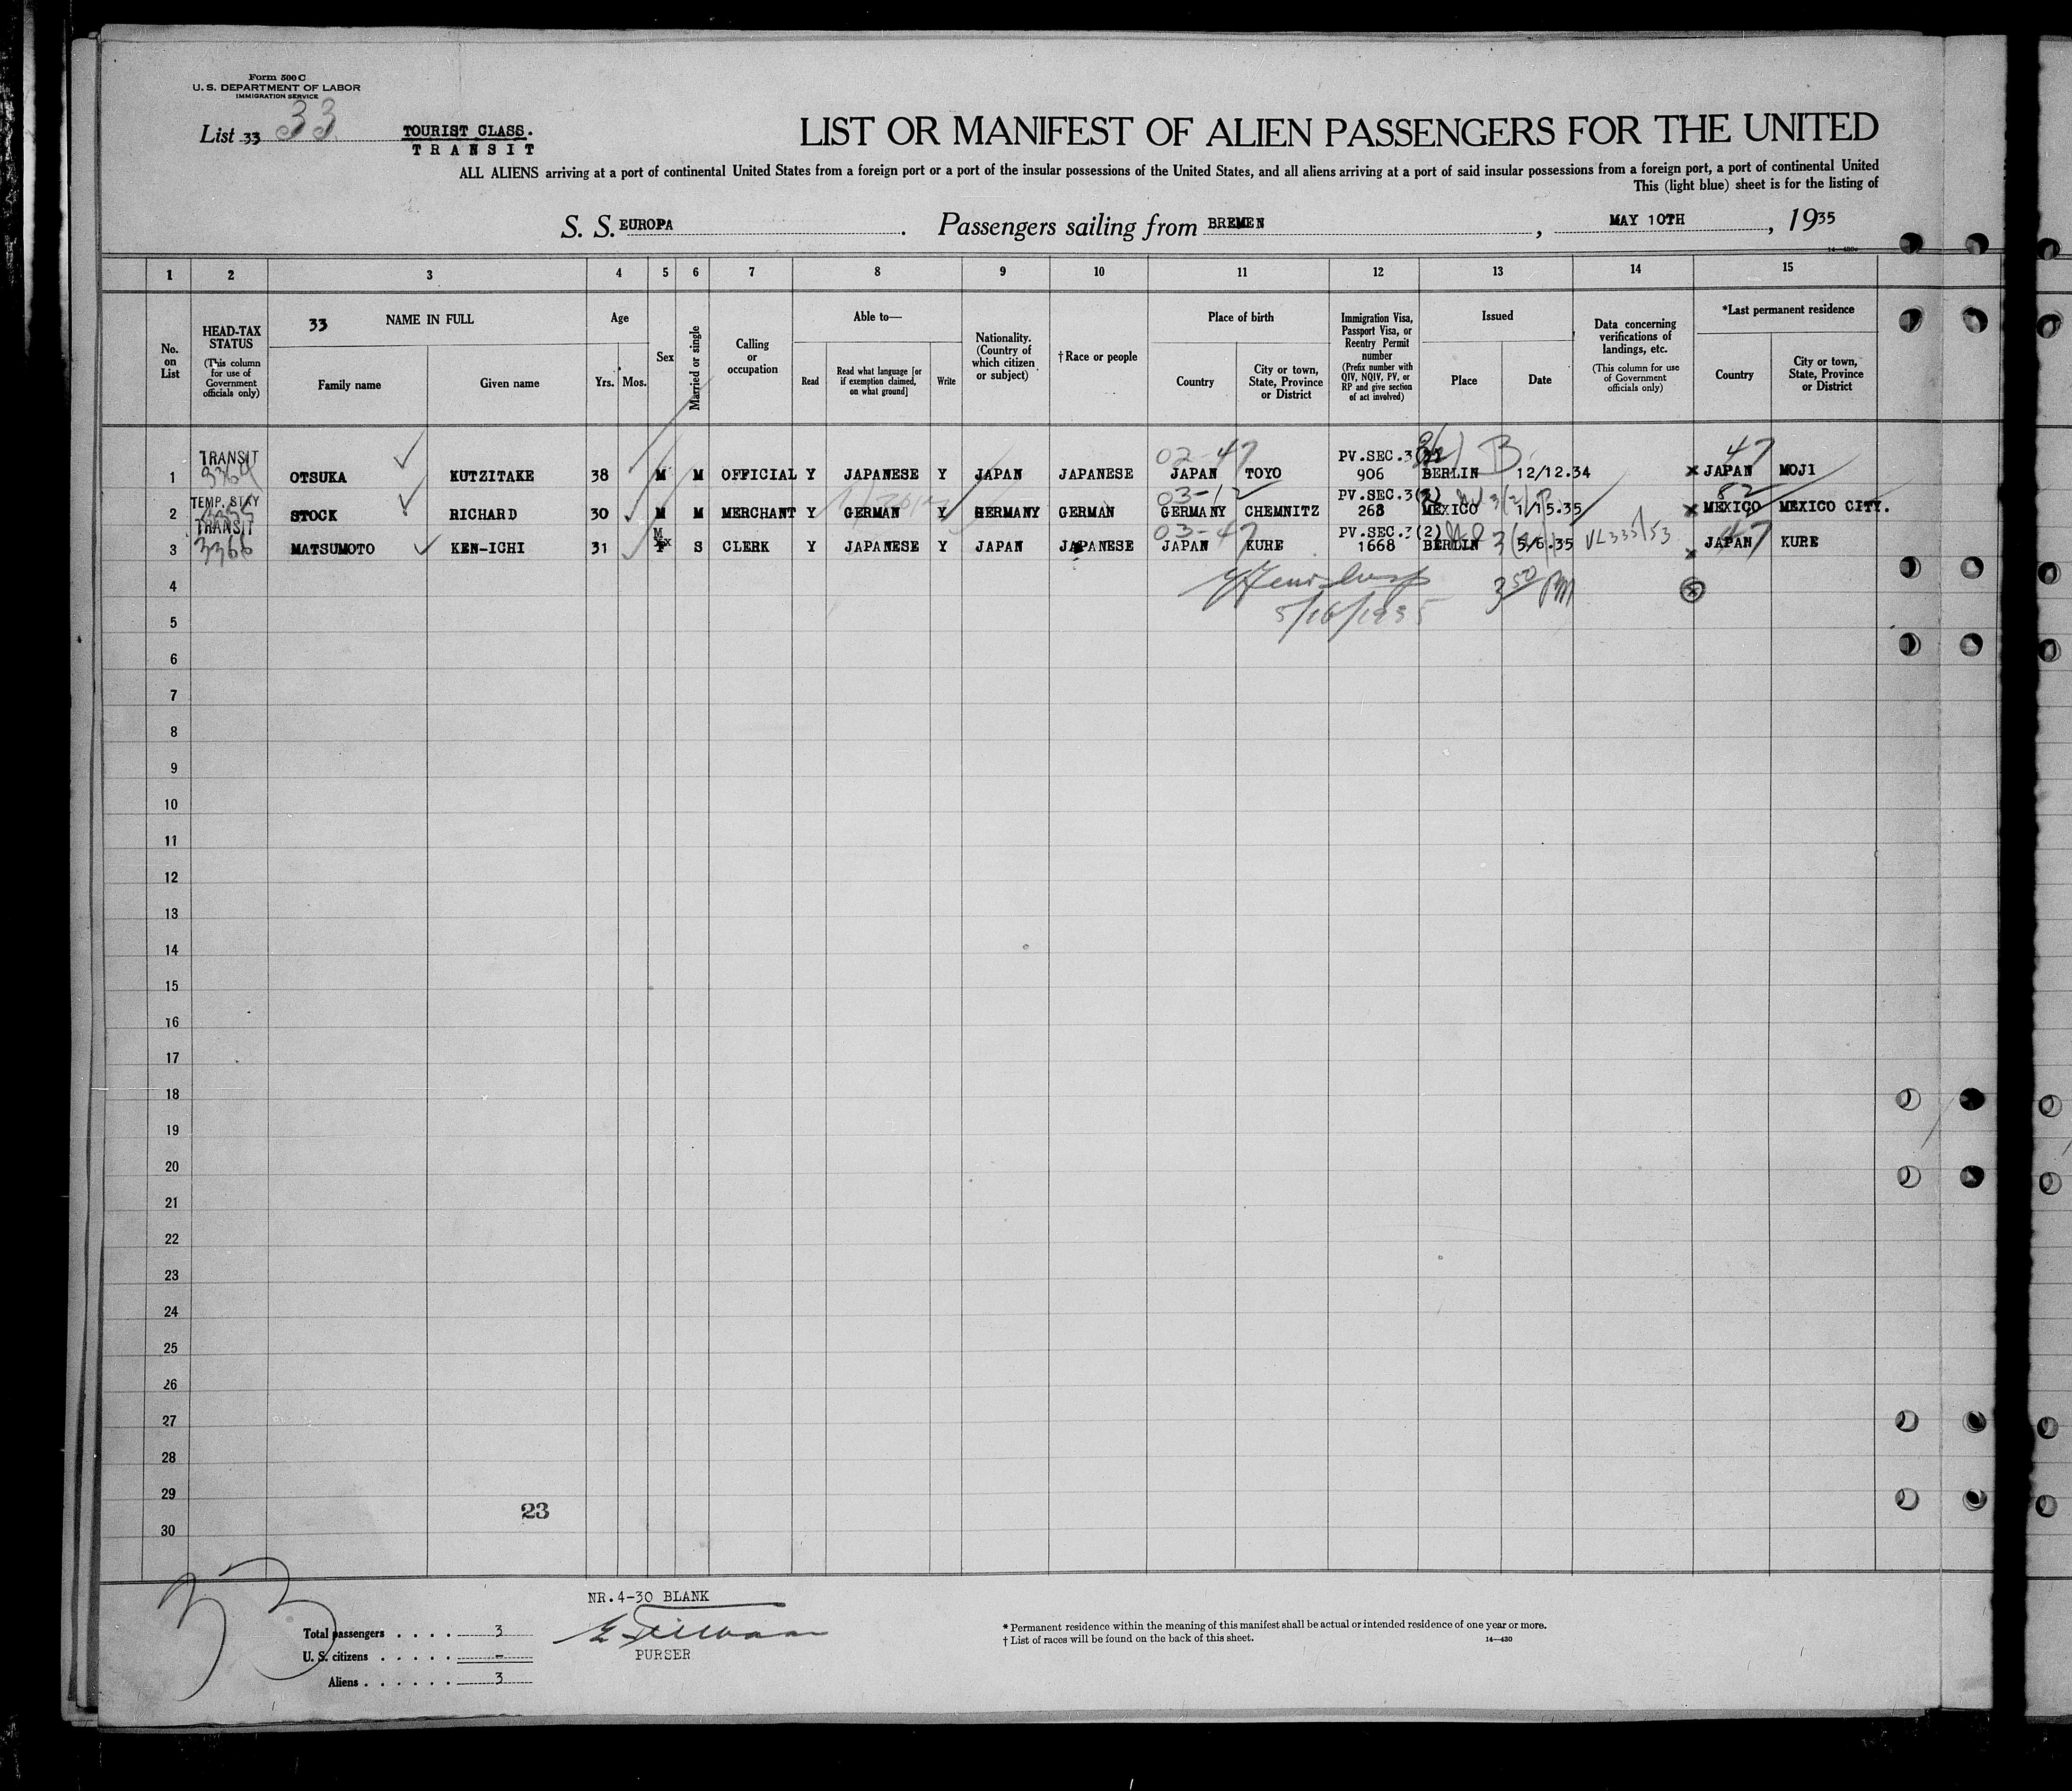 Form 500 C
U. S. DEPARTMENT OF LABOR
IMMIGRATION SERVICE
List 33 33
TOURIST CLASS.
TRANSIT
LIST OR MANIFEST OF ALIEN PASSENGERS FOR THE UNITED
ALL ALIENS arriving at a port of continental United States from a foreign port or a port of the insular possessions of the United States, and all aliens arriving at a port of said insular possessions from a foreign port, a port of continental United
This (light blue) sheet is for the listing of
S. S. EUROPA . Passengers sailing from BREMEN , MAY 10TH , 1935
14—430c
1 2 3 4 5 6 7 8 9 10 11 12 13 14 15
No. on List
HEAD-TAX STATUS
(This column for use of Government officials only)
33 NAME IN FULL
Family name
Given name
Age
Yrs. Mos.
Sex
Married or single
Calling or occupation
Able to—
Read
Read what language [or if exemption claimed, on what ground]
Write
Nationality. (Country of which citizen or subject)
†Race or people
Place of birth
Country
City or town, State, Province or District
Immigration Visa, Passport Visa, or Reentry Permit number
(Prefix number with QIV, NQIV, PV, or RP and give section of act involved)
Issued
Place
Date
Data concerning verifications of landings, etc.
(This column for use of Government officials only)
*Last permanent residence
Country
City or town, State, Province or District
TRANSIT 02-47 PV.SEC.3 B 47
1 3364 OTSUKA KUTZITAKE 38 M M OFFICIAL Y JAPANESE Y JAPAN JAPANESE JAPAN TOYO 906 BERLIN 12/12.34 x JAPAN MOJI
TEMP. STAY 03-12 PV.SEC.3(2) 82
2 STOCK RICHARD 30 M M MERCHANT Y GERMAN Y GERMANY GERMAN GERMANY CHEMNITZ 268 MEXICO 1/15.35 x MEXICO MEXICO CITY.
TRANSIT M 03-47 PV.SEC.3(2) 47
3 3366 MATSUMOTO KEN-ICHI 31 S CLERK Y JAPANESE Y JAPAN JAPANESE JAPAN KURE 1668 BERLIN 5/6.35 x JAPAN KURE
4 3 50 PM x
5 5/16/1935
6
7
8
9
10
11
12
13
14
15
16
17
18
19
20
21
22
23
24
25
26
27
28
29
30
23
33
NR.4-30 BLANK
Total passengers . . . . 3
U. S. citizens . . . . . -
Aliens . . . . . . 3
PURSER
* Permanent residence within the meaning of this manifest shall be actual or intended residence of one year or more.
† List of races will be found on the back of this sheet.
14—430